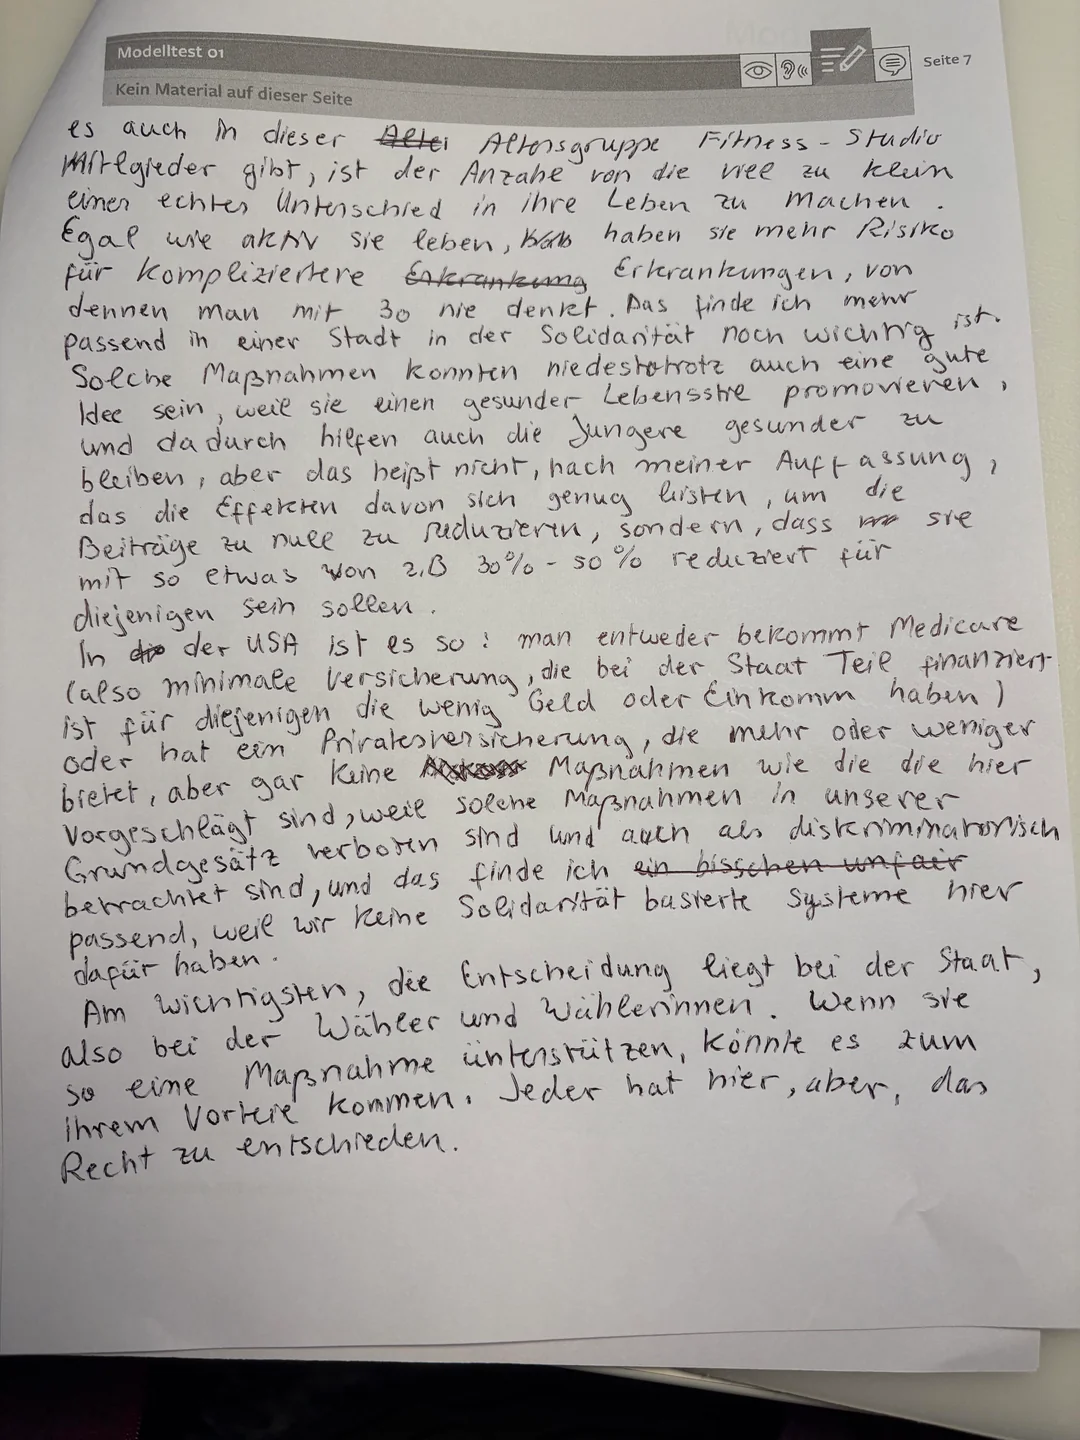 Modelltest 01
Seite 7
Kein Material auf dieser Seite
es auch in dieser Altersgruppe Fitness-Studio
Mitlgieder gibt, ist der Anzahl von die viel zu klein
einen echtes Unterschied in ihre Leben zu machen.
Egal wie aktiv sie leben, haben sie mehr Risiko
für kompliziertere Erkrankung Erkrankungen, von
dennen man mit 30 nie denkt. Das finde ich mehr
passend in einer Stadt in der Solidarität noch wichtig ist.
Solche Maßnahmen konnten niedestotrotz auch eine gute
Idee sein, weil sie einen gesunder Lebensstie promovieren,
und dadurch hilfen auch die Jungere gesunder zu
bleiben, aber das heißt nicht, nach meiner Auffassung,
das die Effekten davon sich genug leisten, um die
Beiträge zu null zu reduzieren, sondern, dass sie
mit so etwas von z.B 30% - 50% reduziert für
diejenigen sein sollen.
In die der USA ist es so: man entweder bekommt Medicare
(also minimale Versicherung, die bei der Staat Teil finanziert
ist für diejenigen die wenig Geld oder Einkomm haben)
oder hat ein Privatesversicherung, die mehr oder weniger
bietet, aber gar keine Maßnahmen wie die die hier
vorgeschlägt sind, weil solche Maßnahmen in unserer
Grundgesätz verboten sind und auch als diskriminatorisch
betrachtet sind, und das finde ich ein bisschen unfair
passend, weil wir keine Solidarität basierte Systeme hier
dafür haben.
Am wichtigsten, die Entscheidung liegt bei der Staat,
also bei der Wähler und Wählerinnen. Wenn sie
so eine Maßnahme üntenstützen, könnte es zum
ihrem Vorteie kommen. Jeder hat hier, aber, das
Recht zu entschieden.